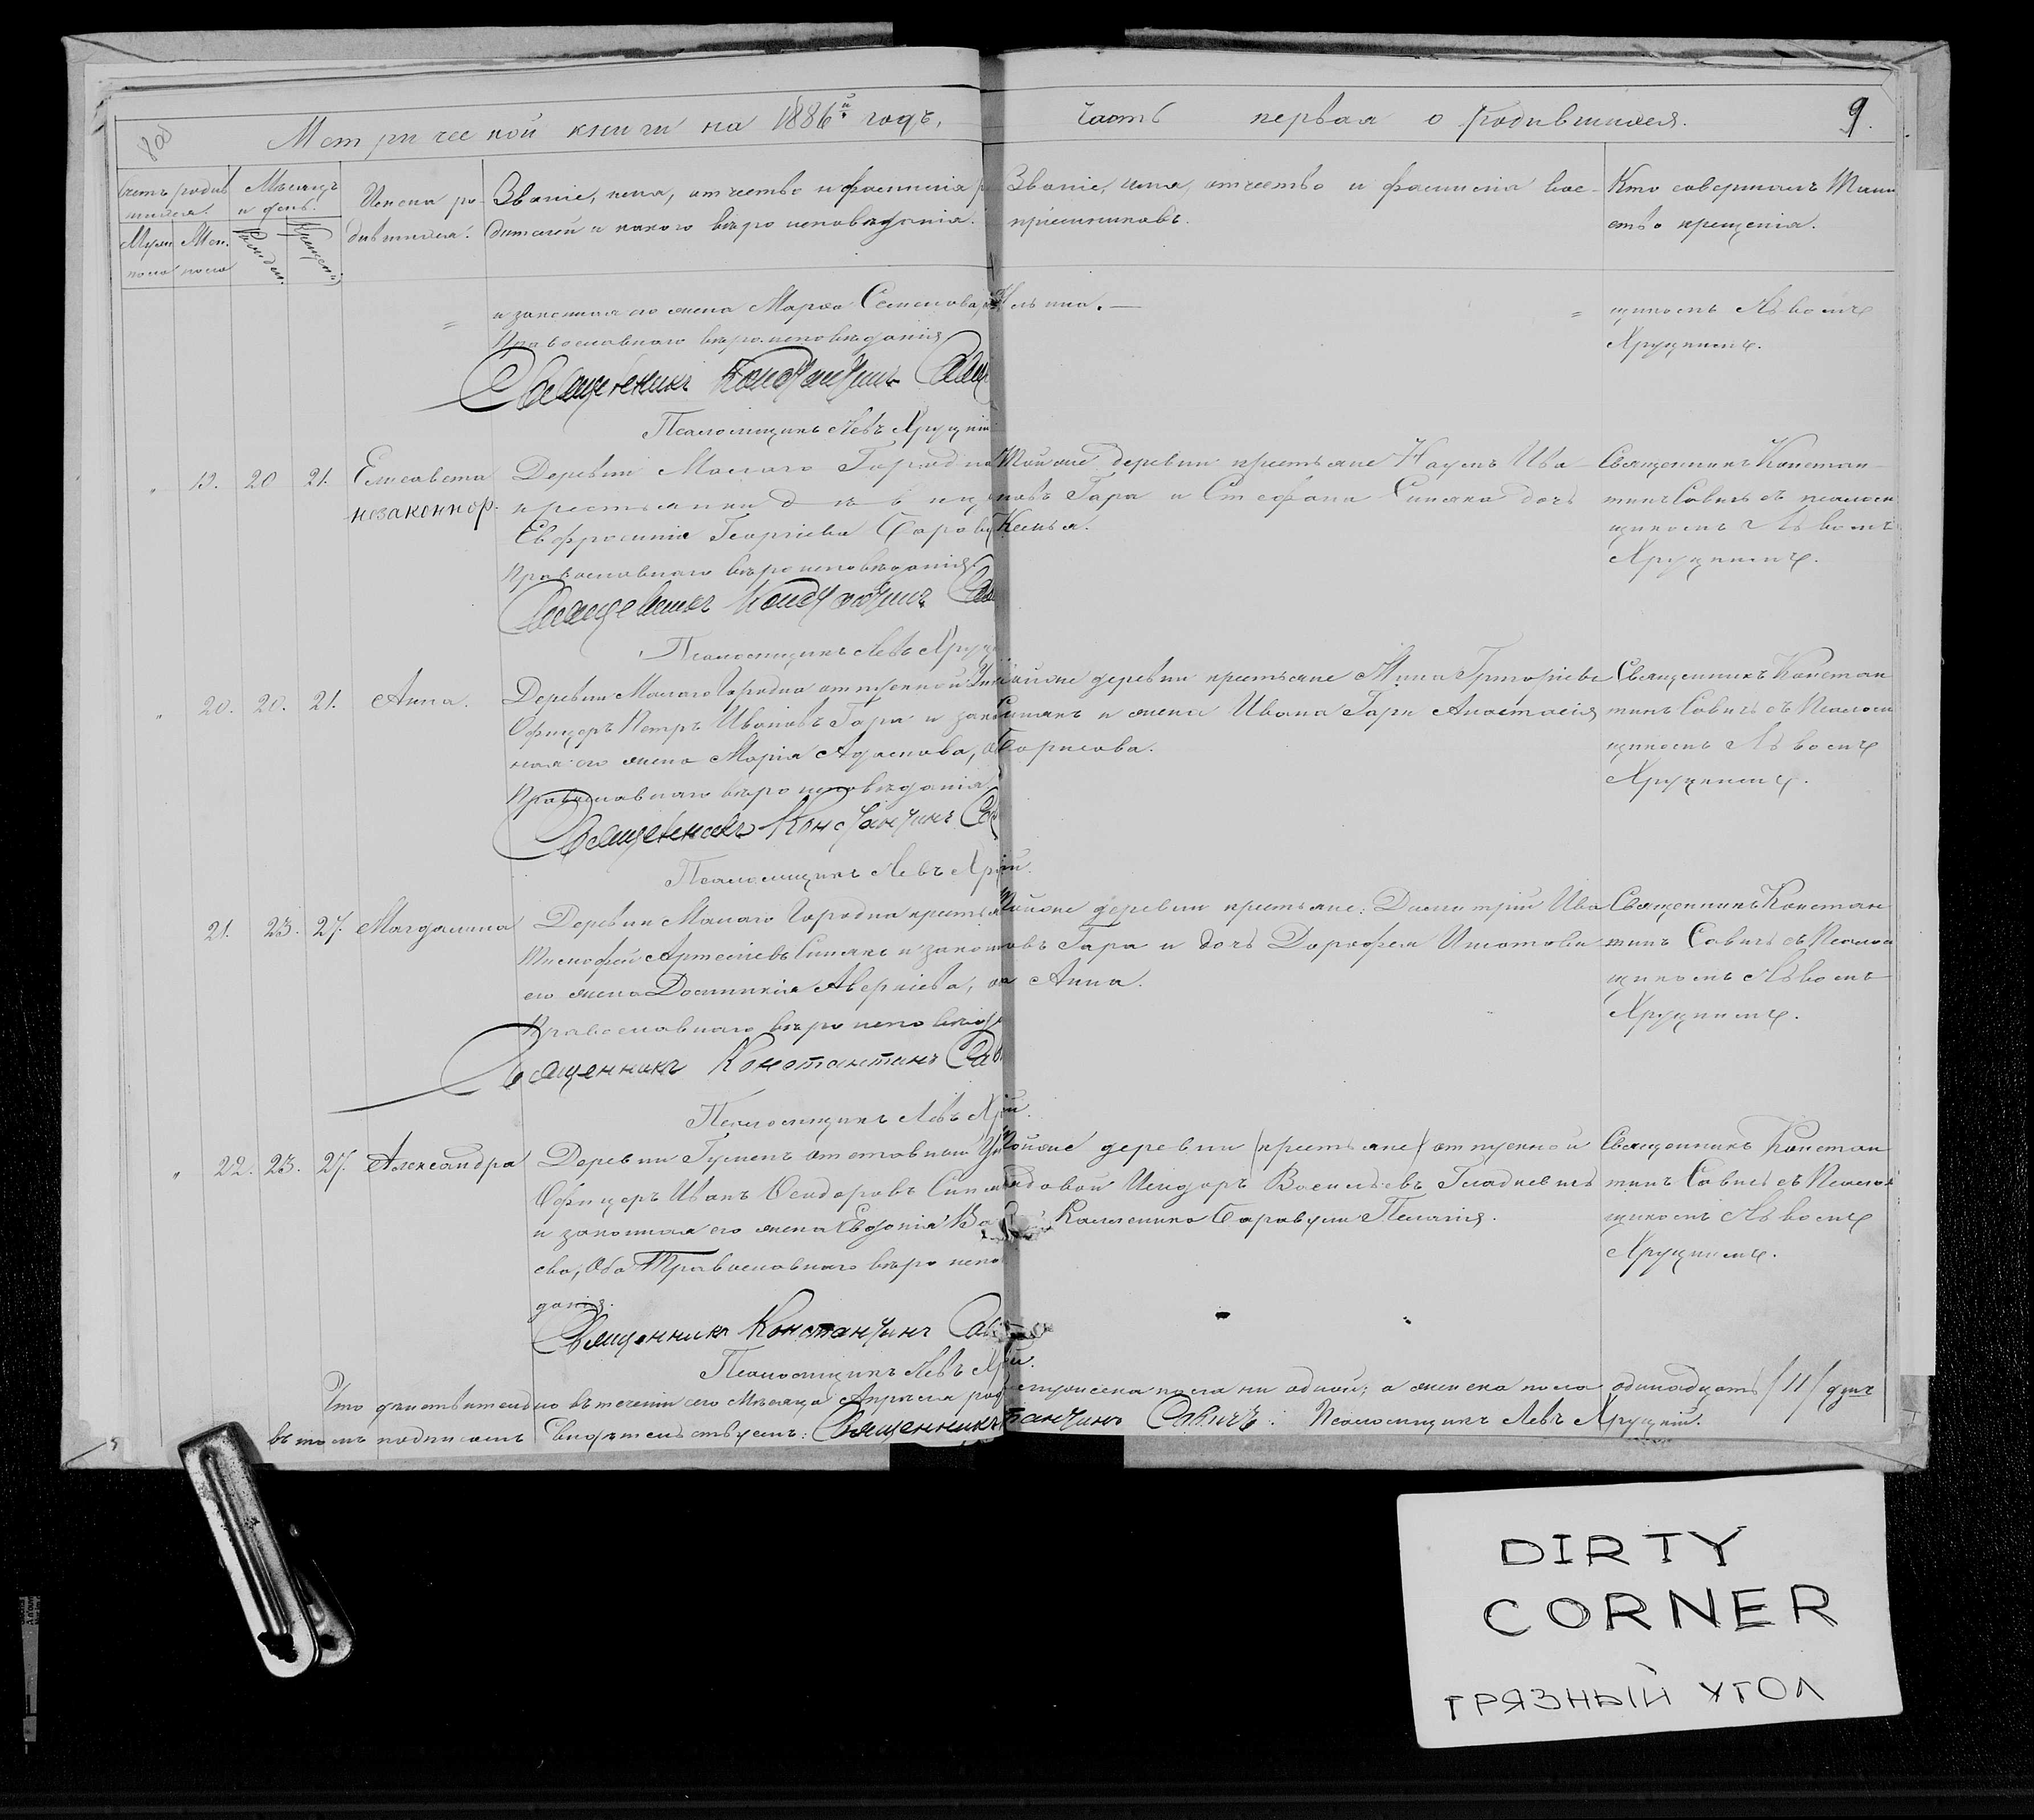 Метрической книги на 1886й годъ,
часть первая о родившихся.
9.
Счетъ родив
шихся.
Мѣсяцъ
и день.
Мужс
пола
Жен.
пола
Рожден.
Крещені
Имена ро-
дившихся.
Званіе, имя, отчество и фамилія р
дителей и какого вѣроисповѣданія.
Званіе, имя, отчество и фамилія вос-
пріемниковъ.
Кто совершалъ Таин
ство крещенія.
и законная его жена Марѳа Семенова,
Православнаго вѣроисповѣданія
Священникъ Константинъ
Псаломщикъ Левъ Хруцкій
щикомъ Львомъ
Хруцкимъ.
19. 20 21. Елисавета
незаконнор.
Деревни Малаго Городна
крестьянки
Евфросинія Георгіева
Православнаго вѣроисповѣданія
Священникъ Константинъ
Псаломщикъ Левъ Хруц
Тойже деревни крестьяне Наумъ Ива
новъ Гара и Стефана Синяка дочь
Священникъ Констан
тинъ Савичъ съ псалом
щикомъ Львомъ
Хруцкимъ.
20. 20. 21. Анна.
Деревни Малаго Городна отпускной Ун
Офицеръ Петръ Ивановъ Гара и зако
ная его жена Марія Адамова,
Православнаго вѣроисповѣданія
Священникъ Константинъ
Псаломщикъ Левъ Хр
тойже деревни крестьяне Мина Григорьевъ
Синякъ и жена Ивана Гары Анастасія
Борисова.
Священникъ Констан
тинъ Савичъ съ Псалом
щикомъ Львомъ
Хруцкимъ.
21. 23. 27. Магдалина
Деревни Малаго Городна крестья
Тимофей Артемьевъ Синякъ и закон
его жена Домникія Аверкіева,
Православнаго вѣроисповѣд
Священникъ Константинъ Сав
Псаломщикъ Левъ Хр
Тойже деревни крестьяне: Димитрій Ива
новъ Гара и дочь Дорофея Игнатова
Анна.
Священникъ Констан
тинъ Савичъ съ Псалом
щикомъ Львомъ
Хруцкимъ.
22. 23. 27. Александра
Деревни отставный Ун
Офицеръ Иванъ Синя
и законная его жена Евдокія Ва
ева, Оба Православнаго вѣроиспо
данія.
Священникъ Константинъ Сав
Псаломщикъ Левъ Хр
Тойже деревни (крестьяне) отпускной
рядовой Исидоръ Васильевъ Гладкевичъ
Пелагія.
Священникъ Констан
тинъ Савичъ съ Псалом
щикомъ Львомъ
Хруцкимъ.
Что дѣйствительно въ теченіи сего Мѣсяца Апрѣля род мужеска пола ни одной; а женска пола одинадцать /11/ душъ
въ томъ подписомъ Свидѣтельствуемъ: Священникъ Савичъ. Псаломщикъ Левъ Хруцкій.
DIRTY
CORNER
ГРЯЗНЫЙ УГОЛ